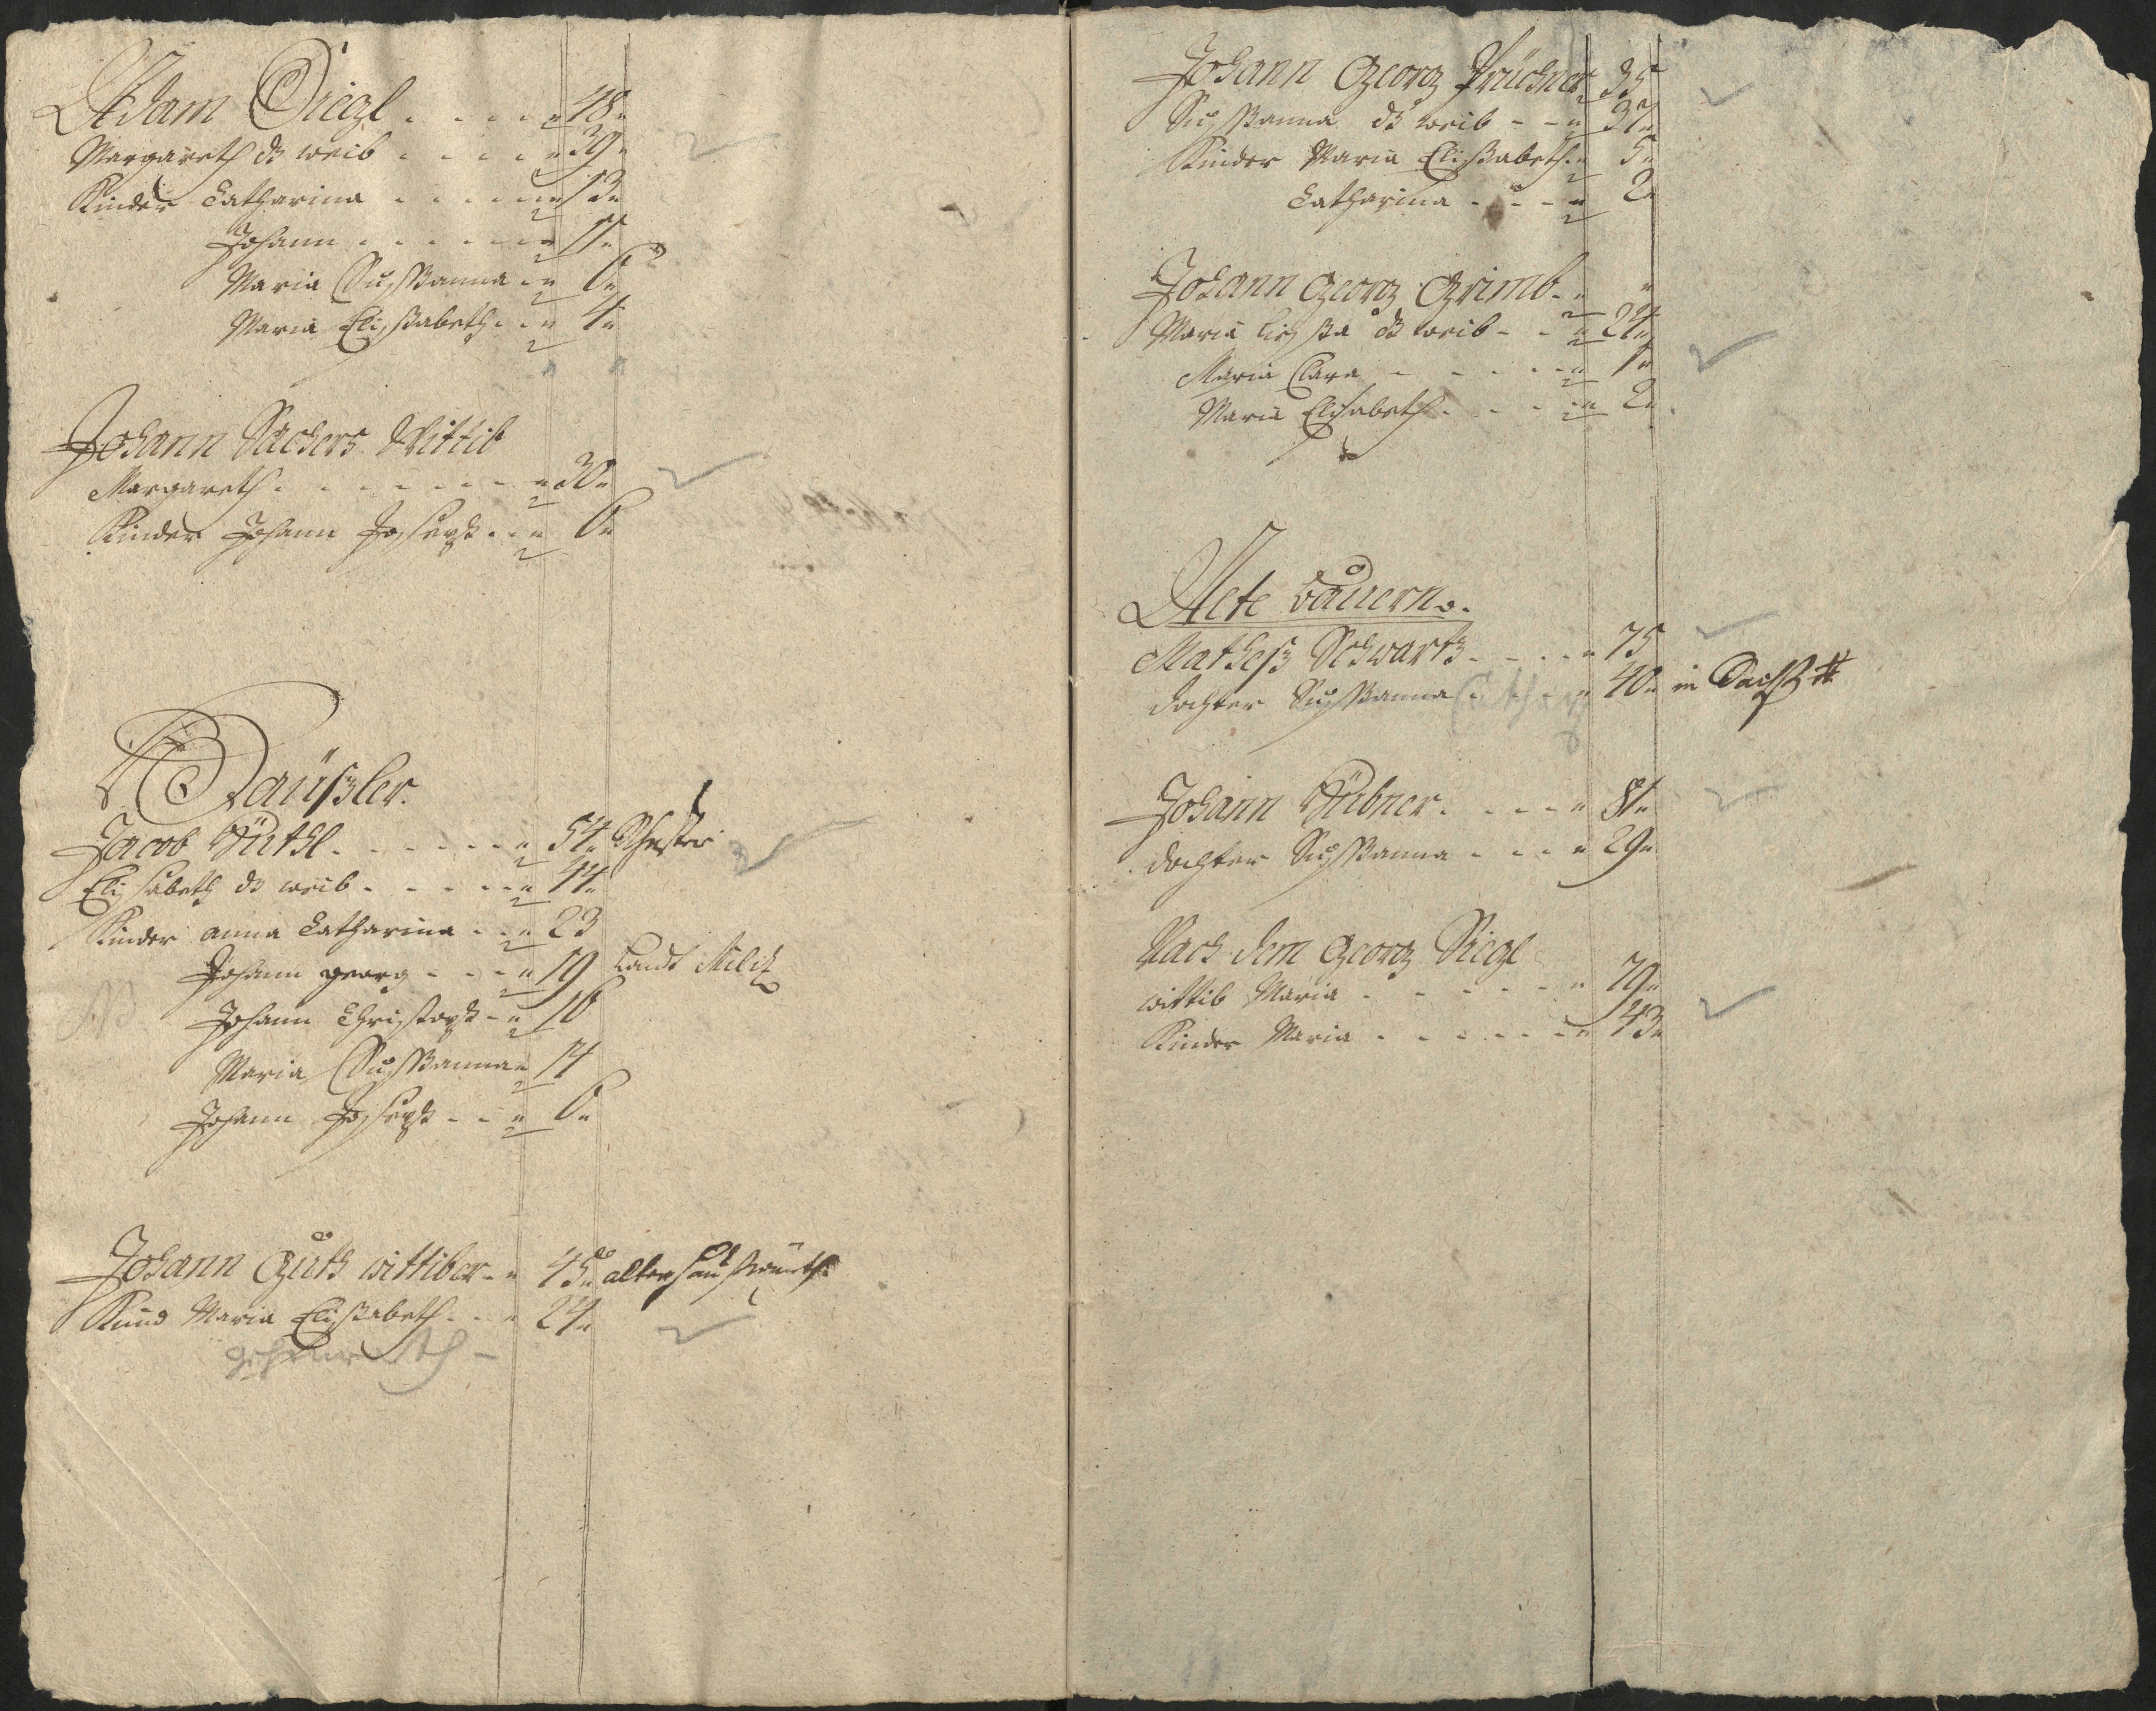 Adam Siegl . . . . 48
Margareth ds weib . . . . 39
Kinder Catharina . . . . 13
Johann . . . . 11
Maria Sussanna . . 6
Maria Elissabeth . . 4
Johann Sachers Wittib
Margareth . . . . . . . 30
Kinder Johann Josseph . . 6
Haüßler.
Jacob Hüttl . . . . . 54 Schuster
Elisabeth ds weib . . . . 44
Kinder anna Catharina . . 23
Johann georg . . . 19 Landt Militz
NB Johann Christoph . . 16
Maria Sussanna 14
Johann Josseph . . 6
Johann Guth wittiber . . 45 alter
Kind Maria Elissabeth . . 24
geheurath -
Johann Georg Prückner 35
Sussanna ds weib . . 37
Kinder Maria Elissabeth 5
Catharina . . . 2
Johann Georg Grimb
Maria ds weib . . 24
Maria Clara . . . . 1
Maria Elisabeth . . . 2
Alte Bauern.
Matheß Schwartz . . . 75
dochter Sussanna . . . 40 in
Johann Hübner . . . . 81
dochter Sussanna . . . 29
Nach dem Georg Siegl
wittib Maria . . . . . . 79
Kinder Maria . . . . . 43